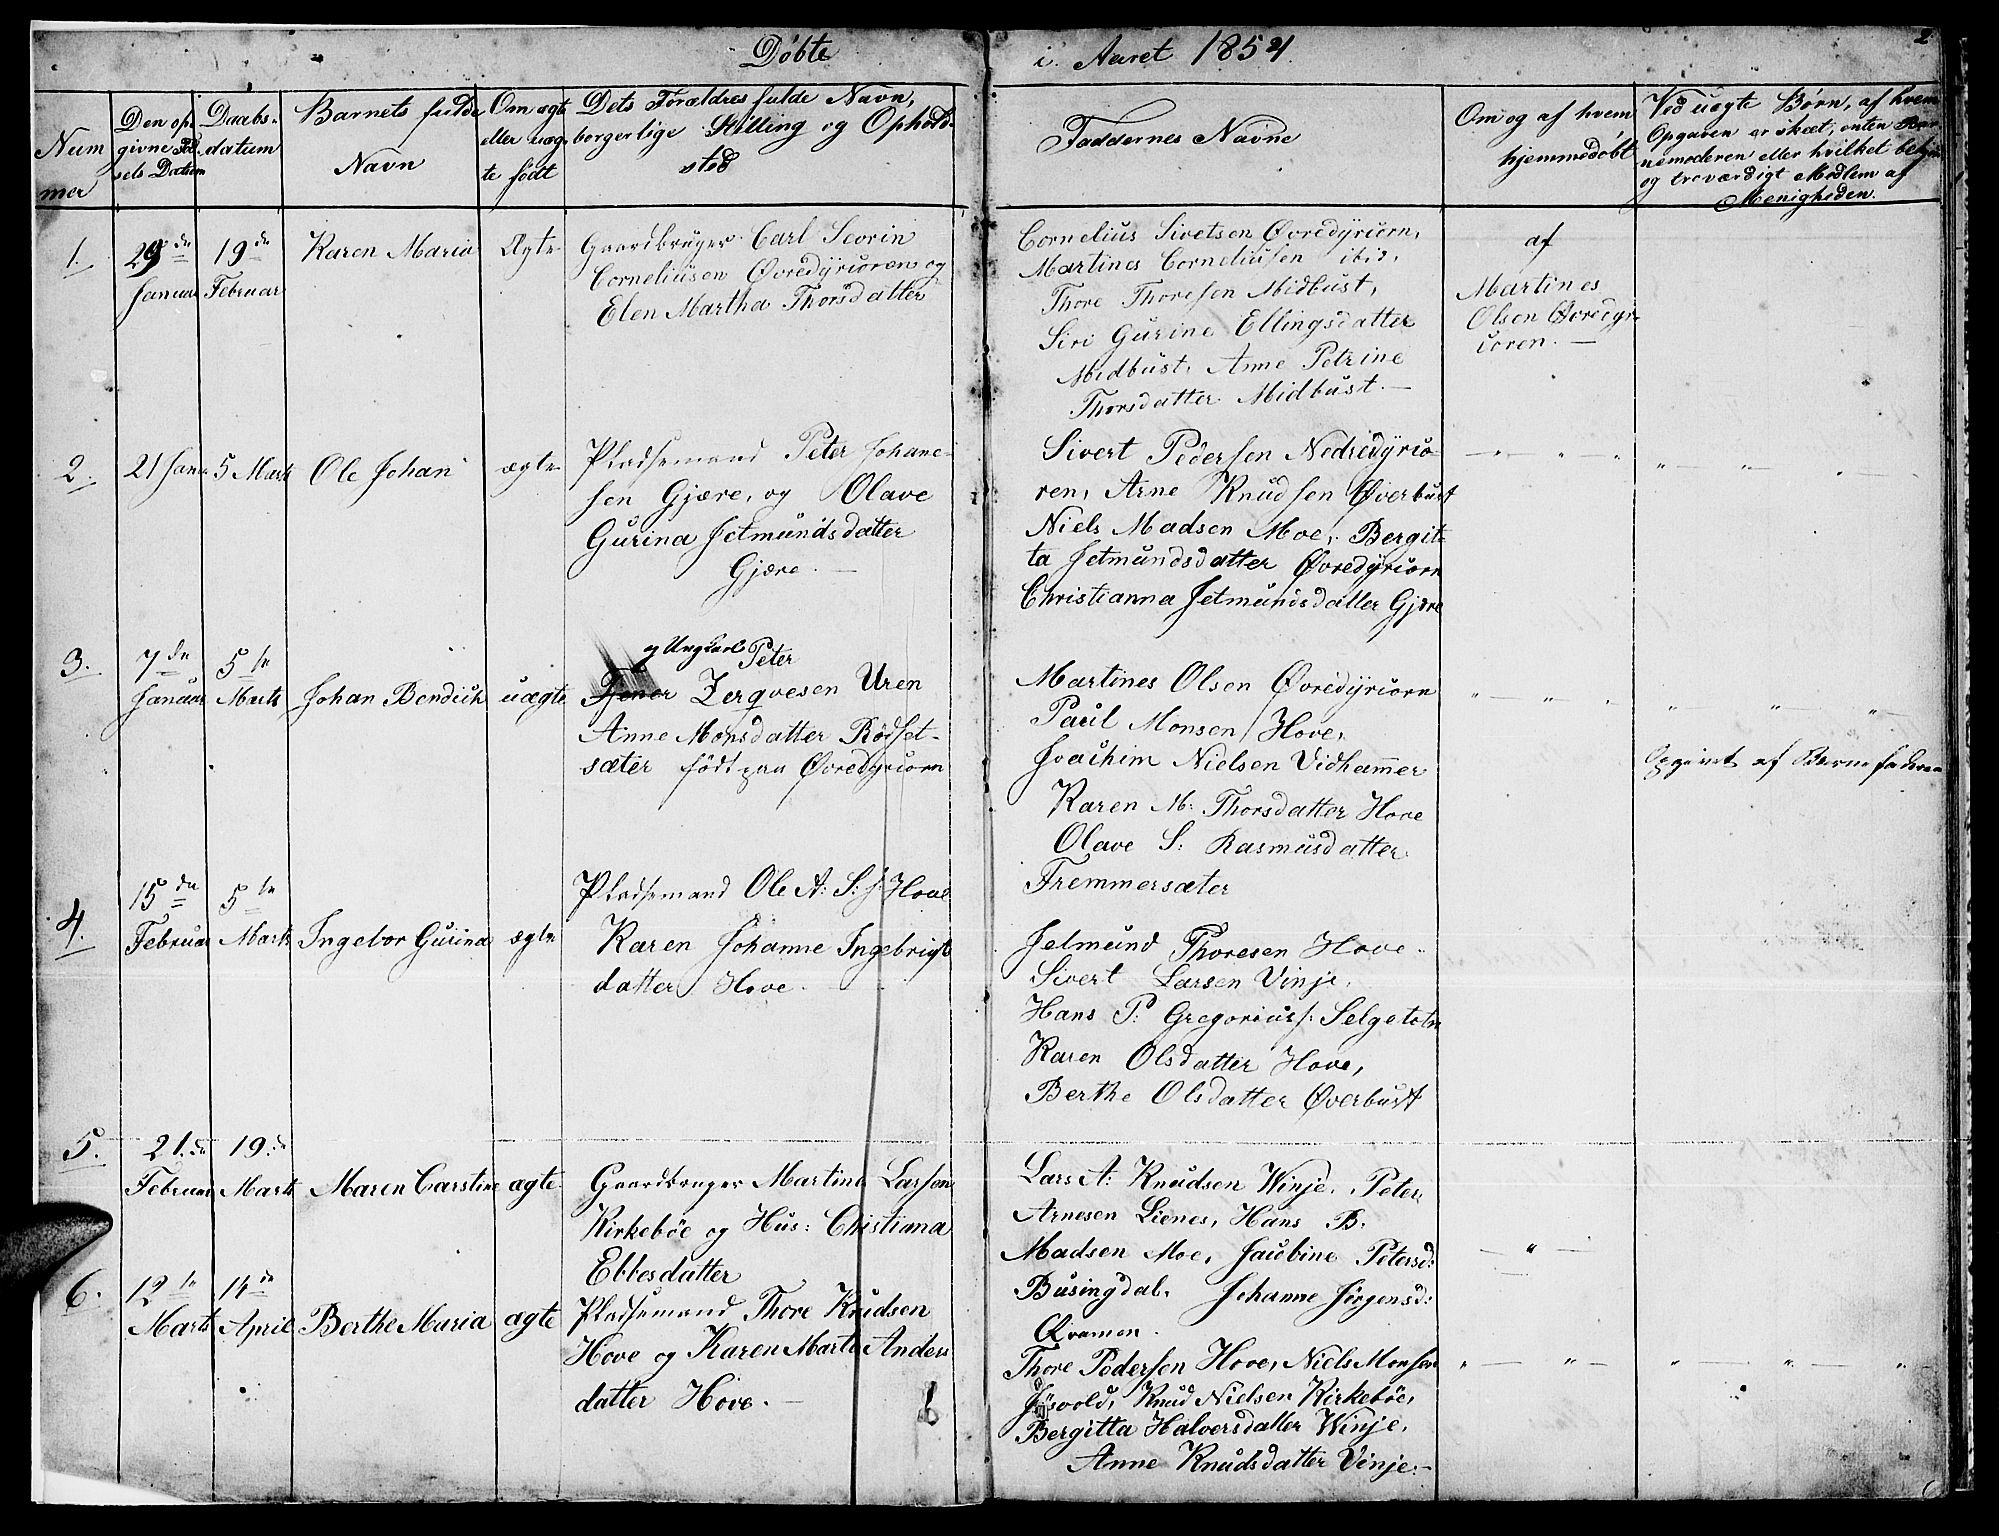 Døbte i Aaret 1854.
2
Num
mer
Den op
givne Föd
sels Datum
Daabs-
datum
Barnets fulde
Navn
Om ægte
eller uæg-
te født
Dets Forældres fulde Navn,
borgerlige Stilling og Opholds-
sted
Faddernes Navne
Om og af hvem
hjemmedøbt
Ved uægte Børn, af hvem
Opgaven er skeet, enten Bar-
nemoderen eller hvilket
og troværdigt Medlem af
Menigheden.
1.
29de
Januar
19de
Februar
Karen Maria
Ægte
Gaardbruger Carl Severin
Corneliusen Øvredyrioren og
Elen Martha Thorsdatter
Cornelius Sivetsen Øvredyriorn,
Martines Corneliussen ibid.
Thore Thoresen Midbust,
Siri Gurine Ellingsdatter
Midbust, Anne Petrine
Thorsdatter Midbust.—
af
Martines
Olsen Øvredyr-
ioren. —
2.
21 Janr
5 Marts
Ole Johan
ægte
Pladsemand Peter Johane-
sen Gjære, og Olave
Gurina Jetmundsdatter
Gjære. —
Sivert Pedersen Nedredyrio-
ren, Arne Knudsen Øverbust
Niels Madsen Moe, Bergit-
ta Jetmundsdatter Øvredyriorn
Christianna Jetmundsdatter Gjære
3.
7de
Januar
5te
Marts
Johan Bendick
uægte
og Ungkarl Peter
Zerqvesen Uren
Anne Monsdatter Rödset-
sæter födt paa Øvredyriorn
Martines Olsen Øvredyriorn
Paul Monsen Hove,
Joachim Nielsen Vidhammer
Karen M: Thorsdatter Hove
Olave S: Rasmusdatter
Fremmersæter
Opgivet af Barnefaderen
4.
15de
Februar
5te
Marts
Ingebor Gurina
ægte
Pladsemand Ole A: S: s: Hove
Karen Johanne Ingebrigts
datter Hove.
Jetmund Thoresen Hove.
Sivert Larsen Vinje,
Hans P: Gregorius s: Selgetotn
Karen Olsdatter Hove,
Berthe Olsdatter Øverbust
5.
21.de
Februar
19.de
Marts
Maren Carstine
ægte
Gaardbruger Martinus Larsen
Kirkebøe og Hus: Christiana
Ebbesdatter
Lars A: Knudsen Winje, Peter
Arnesen Lienes, Hans B.
Madsen Moe, Jaubine Petersd:
Busingdal, Johanne Jörgensd:
Qvamen.
6.
12te
Marts
14de
April
Berthe Maria
ægte
Pladsemand Thore Knudsen
Hove og Karen Marta Anders
datter Hove. —
Thore Pedersen Hove, Niels Monsen
Jösvold, Knud Nielsen Kirkeböe,
Bergitta Halversdatter Winje,
Anne Knudsdatter Vinje.—